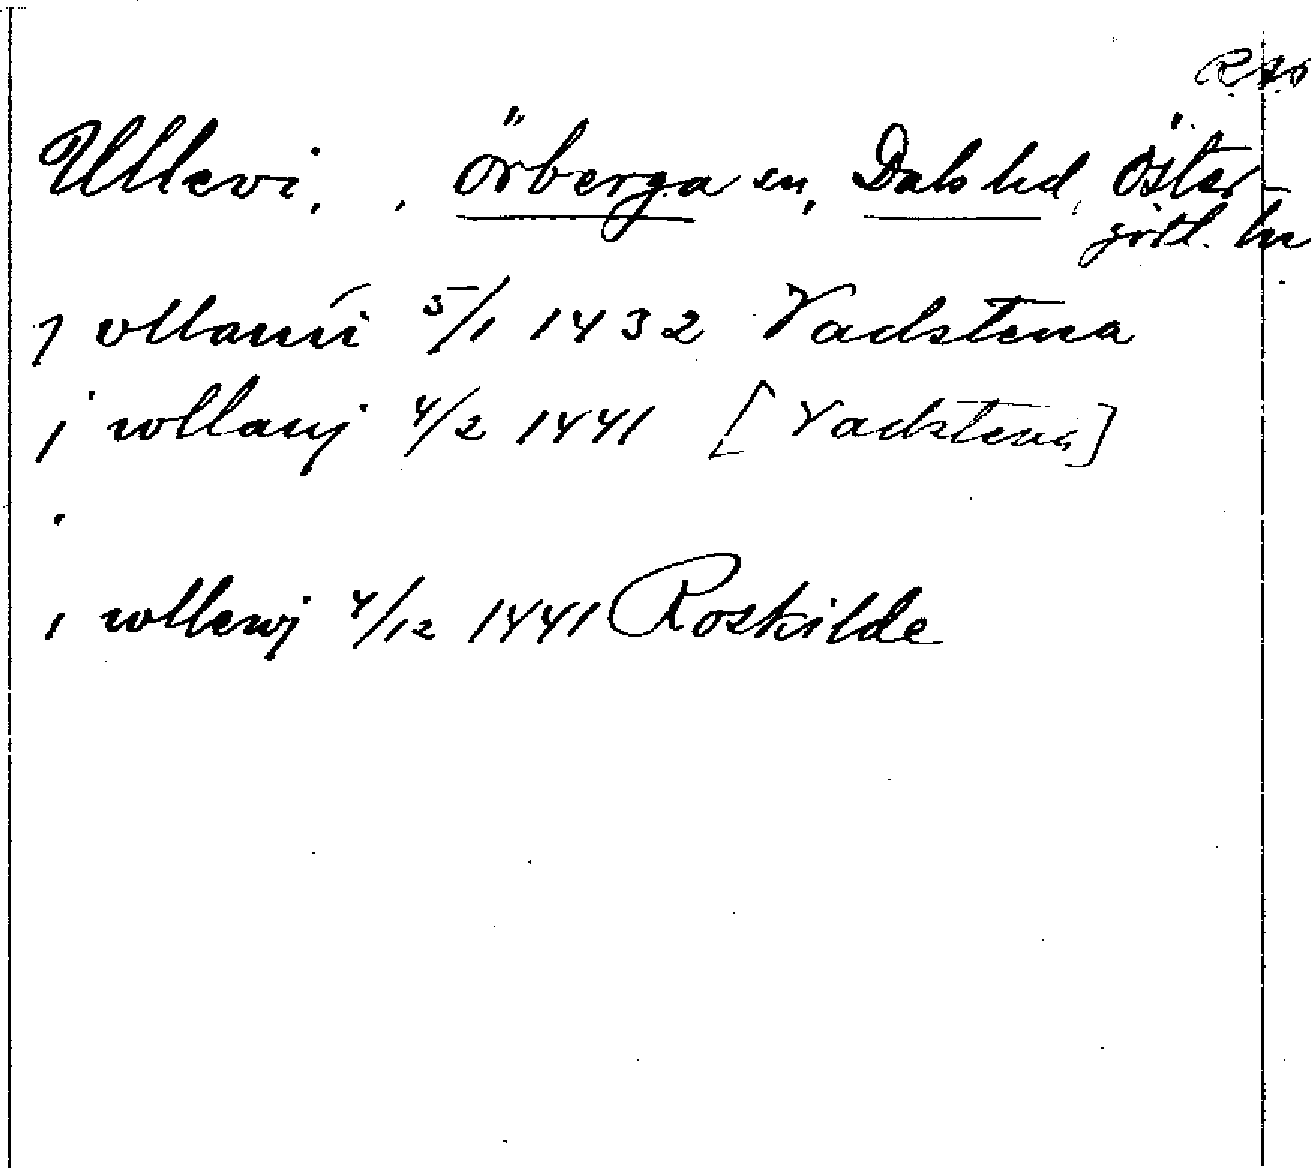 RAp
Ullevi, , Örberga sn, Dals hd, Öster-
götl. ln
j vllawi 5/1 1432 Vadstena
j wllawj 4/2 1441 [Vadstena]
i wllewj 4/12 1441 Roskilde